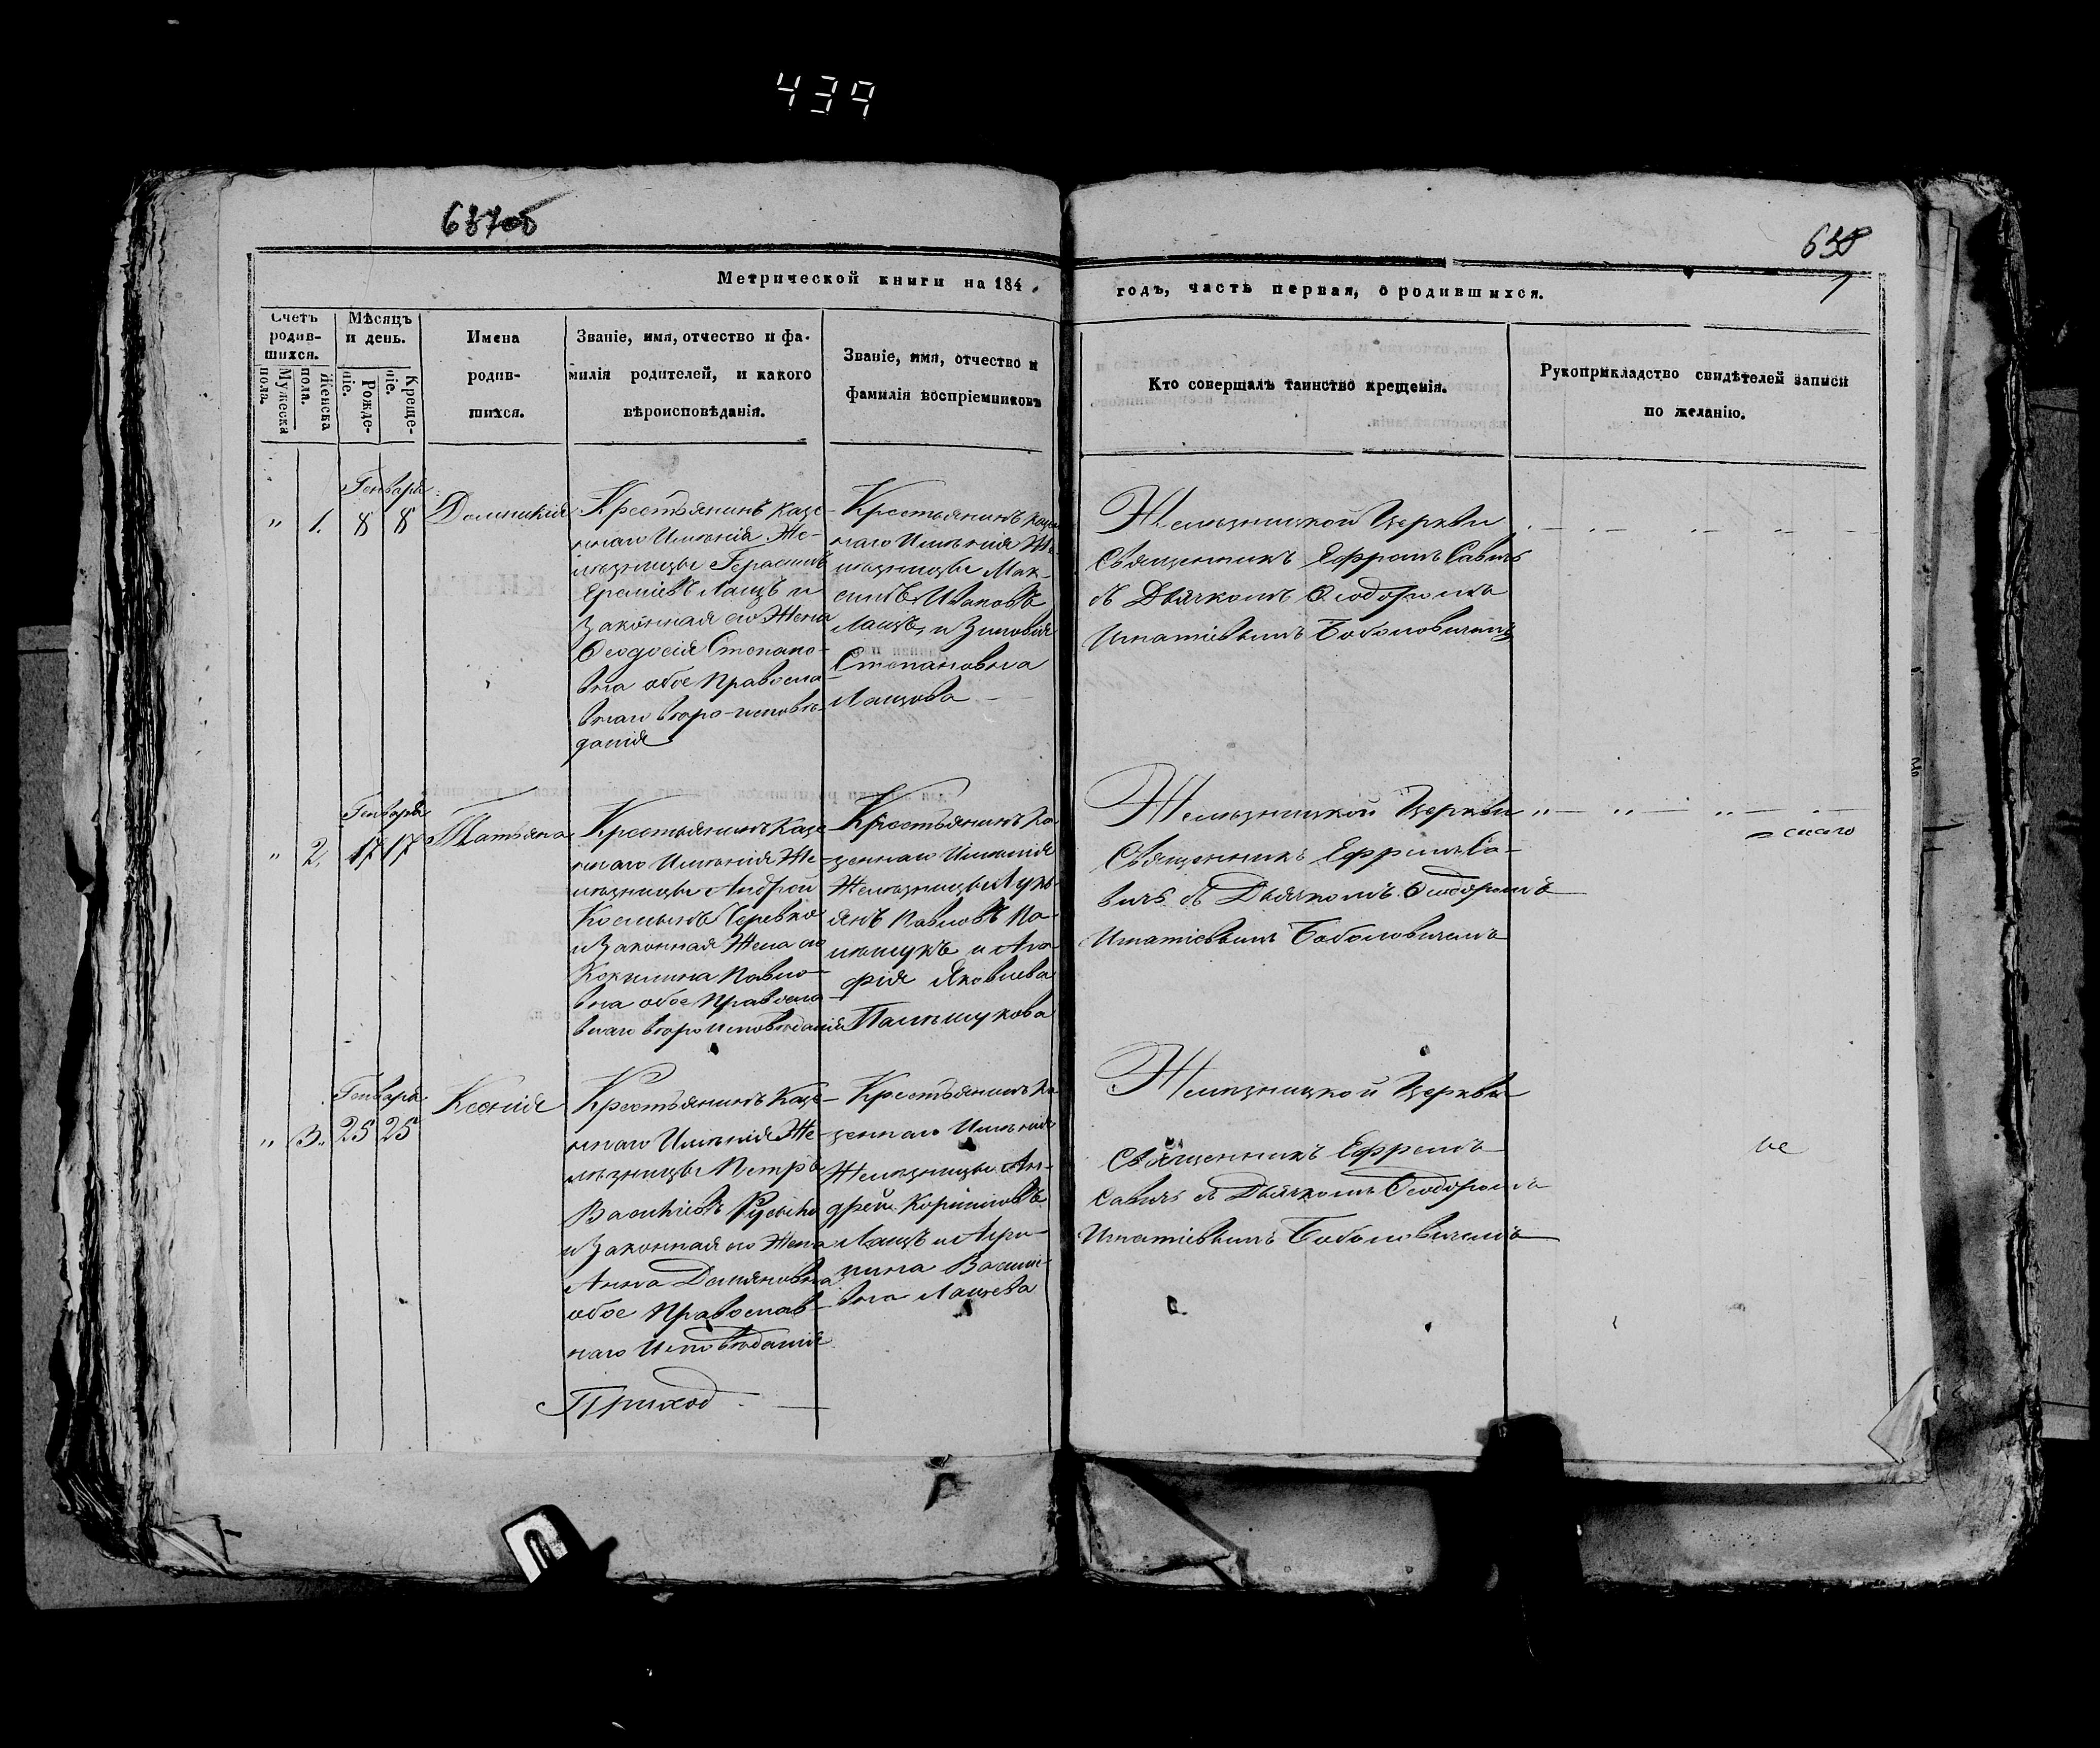 439
637об
638
Метрической книги на 184
годъ, часть первая, о родившихся.
1
Счетъ родив-шихся.
Мужеска пола.
Женска пола.
Мѣсяцъ и день.
Рожде-ніе.
Креще-ніе.
Имена
родив-
шихся.
Званіе, имя, отчество и фа-
милія родителей, и какого
вѣроисповѣданія.
Званіе, имя, отчество и
фамилія воспріемниковъ
Кто совершалъ таинство крещенія.
Рукоприкладство свидѣтелей записи
по желанію.
Генваря
" 1. 8 8
Домникія
Крестьянинъ казе-
ннаго Имѣнія Же-
лѣзницы Герасимъ
Ереміевъ Лащъ и
Законная его Жена
Ѳеодосія Степано-
вна обое Правосла-
внаго вѣро-исповѣ-
данія
Крестьянинъ казе-
ннаго Имѣнія Же-
лѣзницы Мак-
симъ
Лащъ, и Зиновія
Степановна
Лащова
Желѣзницкой Церкви
Священникъ Ефремъ Савичъ
съ Дьячкомъ Ѳеодоромъ
Игнатіевымъ Боболовичемъ
Генваря
" 2. 17 17
Татьяна
Крестьянинъ Казе-
ннаго Имѣнія Же-
лѣзницы Андрей
Косминъ Черевко
и Законная Жена его
Павло-
вна обое Правосла-
внаго вѣроисповѣданія
Крестьянинъ Ка-
зеннаго Имѣнія
Желѣзницы Лукь-
янъ Павловъ Па-
мѣшукъ и Ага-
фія Яковлева
Памѣшукова
Желѣзницкой Церкви
Священникъ Ефремъ Са-
вичъ съ Дьячкомъ Ѳеодоромъ
Игнатіевымъ Боболовичемъ
Генваря
" 3. 25 25
Ксенія
Крестьянинъ Казе-
ннаго Имѣнія Же-
лѣзницы Петръ
и Законная его Жена
Анна Демяновна
обое Православ-
наго Исповѣданія
Крестьянинъ Ка-
зеннаго Имѣнія
Желѣзницы Ан-
дрей Корниловъ
Лащъ и Агри-
пина Васили-
вна Лащева
Желѣзницкой Церкви
Священникъ Ефремъ
Савичъ съ Дьячкомъ Ѳеодоромъ
Игнатіевымъ Боболовичемъ
Приход